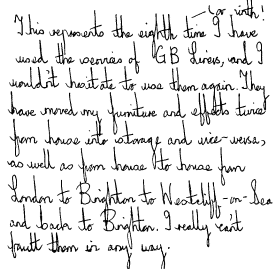 (or ninth!
This represents the eighth time I have
used the services of GB Liners, and I
wouldn't hesitate to use them again. They
have moved my furniture and effects twice
from house into storage and vice-versa,
as well as from house to house from
London to Brighton to Westcliff-on-Sea
and back to Brighton. I really can't
fault them in any way.